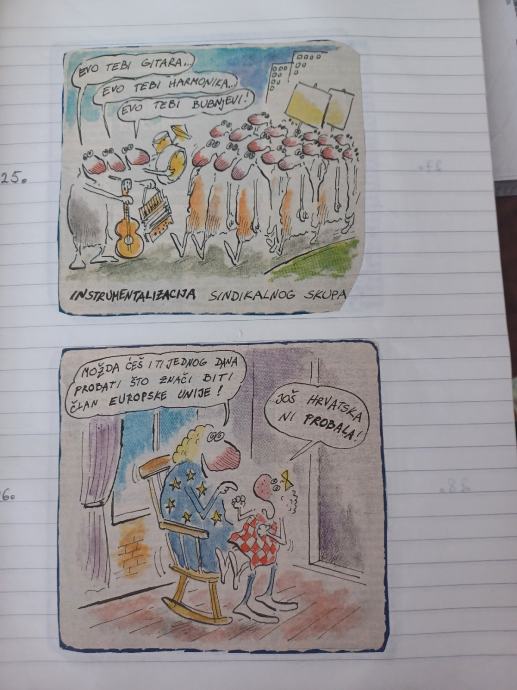 EVO TEBI GITARA...
EVO TEBI HARMONIKA...
EVO TEBI BUBNJEVI!
25.
INSTRUMENTALIZACIJA SINDIKALNOG SKUPA
MOŽDA ĆEŠ I TI JEDNOG DANA
PROBATI ŠTO ZNAČI BITI
ČLAN EUROPSKE UNIJE!
JOŠ HRVATSKA
NI PROBALA!
6.